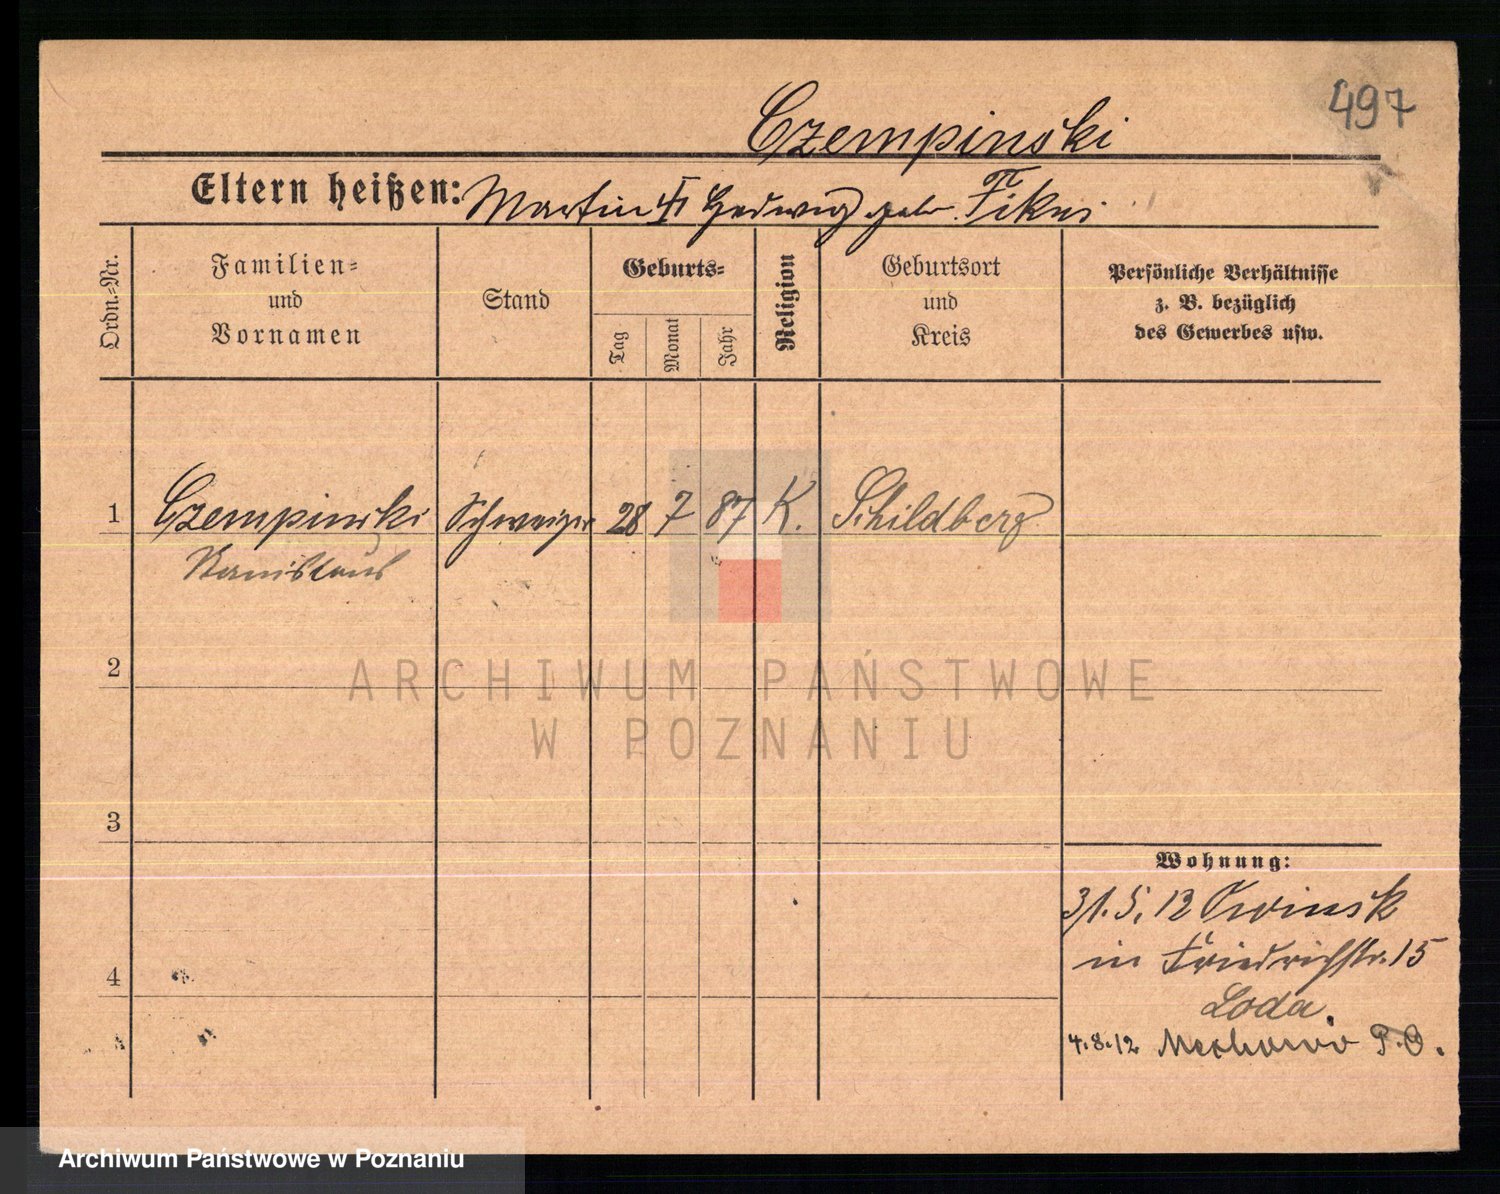 497
Czempinski
Eltern heißen: Martin Hedwig geb. Fikus
Ordn.-Nr.
Familien- und Vornamen
Stand
Geburts-
Tag
Monat
Jahr
Religion
Geburtsort und Kreis
Persönliche Verhältnisse
z. B. bezüglich
des Gewerbes usw.
1 Czempinski Schweizer 28 7 87 K. Schildberg
Stanislaus
2
3
4
Wohnung:
31.5.12 Owinsk
in Friedrichstr. 15
Loda.
4.8.12 Mechowo P.O.
ARCHIWUM PAŃSTWOWE
W POZNANIU
Archiwum Państwowe w Poznaniu